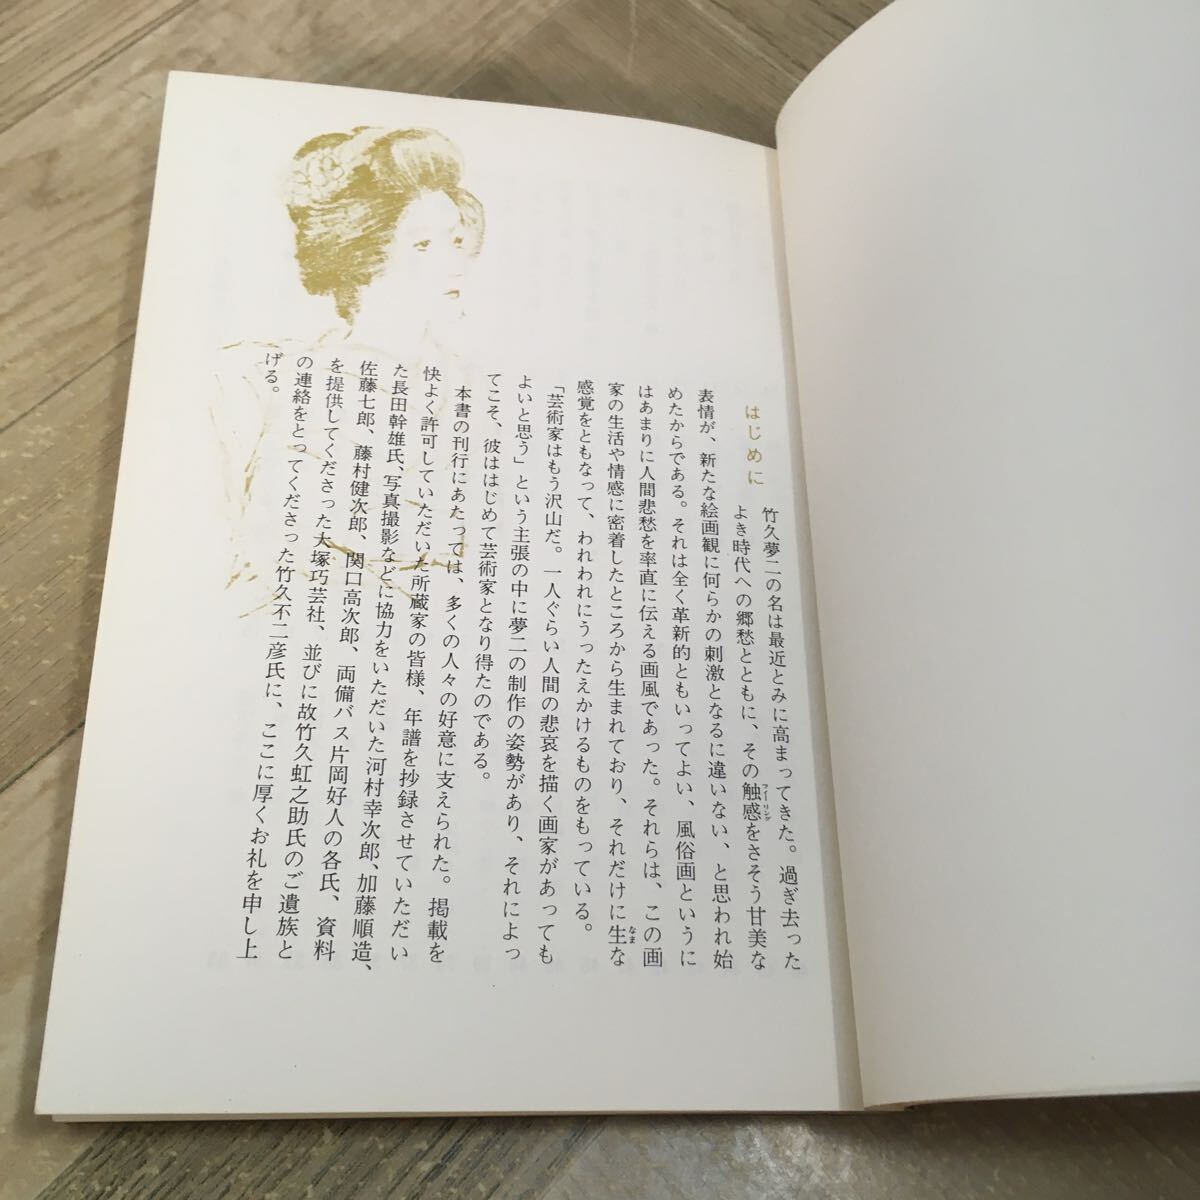 はじめに
竹久夢二の名は最近とみに高まってきた。過ぎ去った
よき時代への郷愁とともに、その触感をさそう甘美な
フィーリング
表情が、新たな絵画観に何らかの刺激となるに違いない、と思われ始
めたからである。それは全く革新的ともいってよい、風俗画というに
はあまりに人間悲愁を率直に伝える画風であった。それらは、この画
家の生活や情感に密着したところから生まれており、それだけに生な
なま
感覚をともなって、われわれにうったえかけるものをもっている。
「芸術家はもう沢山だ。一人ぐらい人間の悲哀を描く画家があっても
よいと思う」という主張の中に夢二の制作の姿勢があり、それによっ
てこそ、彼ははじめて芸術家となり得たのである。
本書の刊行にあたっては、多くの人々の好意に支えられた。掲載を
快よく許可していただいた所蔵家の皆様、年譜を抄録させていただい
た長田幹雄氏、写真撮影などに協力をいただいた河村幸次郎、加藤順造、
佐藤七郎、藤村健次郎、関口高次郎、両備バス片岡好人の各氏、資料
を提供してくださった大塚巧芸社、並びに故竹久虹之助氏のご遺族と
の連絡をとってくださった竹久不二彦氏に、ここに厚くお礼を申し上
げる。